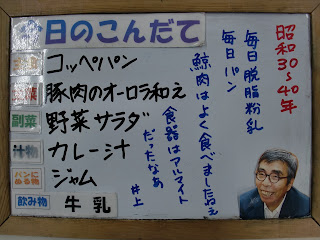 今日のこんだて
主食 コッペパン
主菜 豚肉のオーロラ和え
副菜 野菜サラダ
汁物 カレー汁
パンにぬる物 ジャム
飲み物 牛乳
昭和30～40年
毎日脱脂粉乳
毎日パン
鯨肉はよく食べましたねぇ
食器はアルマイト
だったなあ
井上